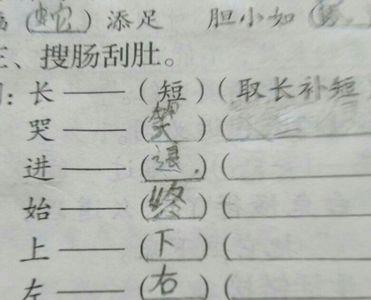 (蛇)添足 胆小如(
、搜肠刮肚。
:长——(短)(取长补短
哭——(笑)(
进——(退)(
始——(终)(
上——(下)(
左——(右)(